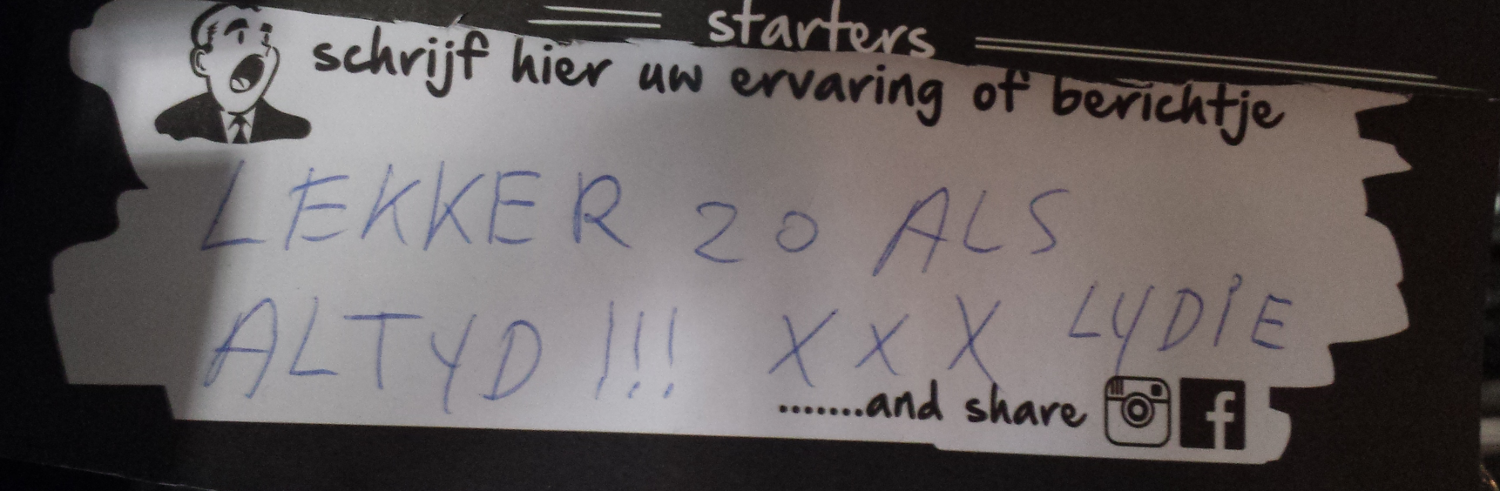 starters
schrijf hier uw ervaring of berichtje
LEKKER ZO ALS
ALTYD !!! XXX LYDIE
.......and share f